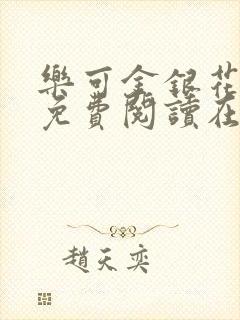 樂可金銀花
免費閱讀在
趙天奕